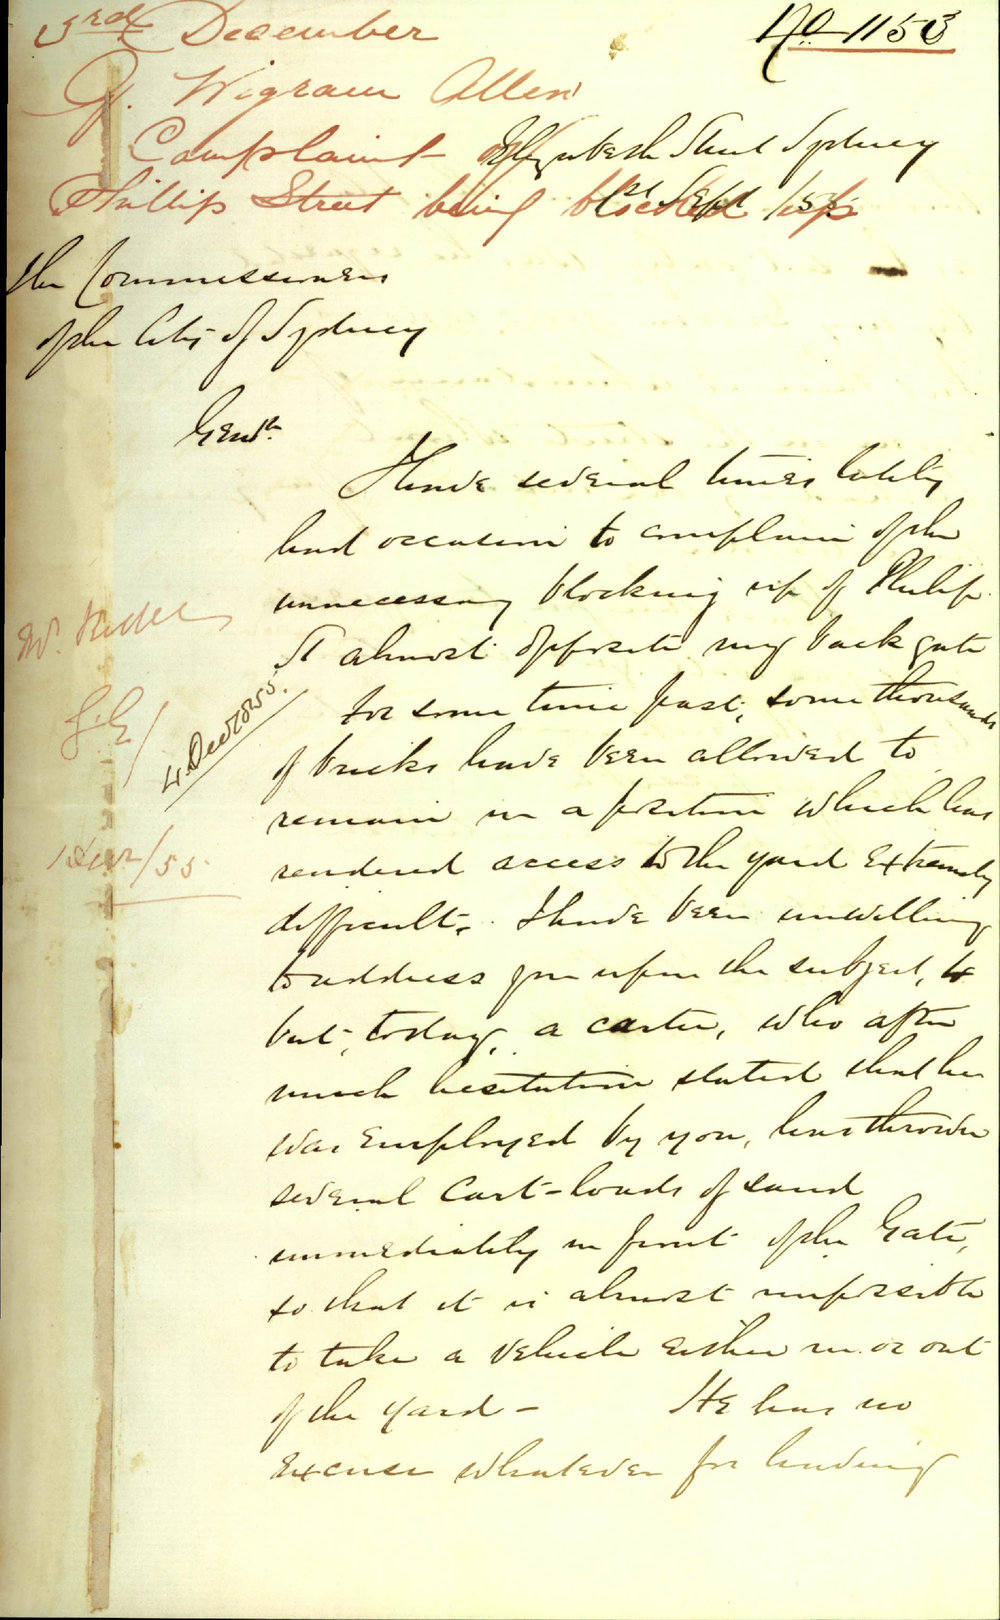 3rd December
No 1153
G. Wigram Allen
Complaint of
Elizabeth Street Sydney
Phillip Street being blocked up
1st Sept /55
The Commissioners
of the City of Sydney
Gentn
I have several times lately
had occasion to complain of the
unnecessary blocking up of Philip
St almost opposite my back gate
For some time past, some thousands
of bricks have been allowed to
remain in a position which has
rendered access to the yard extremely
difficult. I have been unwilling
to address you upon the subject,
but, today, a carter, who after
much hesitation stated that he
was employed by you, has thrown
several cart-loads of sand
immediately in front of the Gate,
so that it is almost impossible
to take a vehicle either in or out
of the yard - He has no
excuse whatever for leaving
Mr.
4 Dec
Dec /55